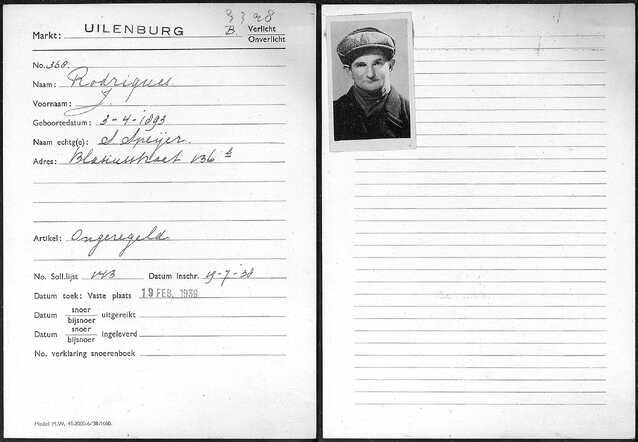 3398
Markt: UILENBURG B. Verlicht
Onverlicht
No. 368.
Naam: Rodrigues
Voornaam: J.
Geboortedatum: 3-4-1893
Naam echtg(e): S. Speijer.
Adres: Blasiusstraat 136
Artikel: Ongeregeld
No. Soll.lijst 143 Datum inschr. 19-7-38
Datum toek: Vaste plaats 19 FEB. 1939
Datum snoer
bijsnoer uitgereikt
Datum snoer
bijsnoer ingeleverd
No. verklaring snoerenboek
Model M.W. 45-2000-6/'38/1680.